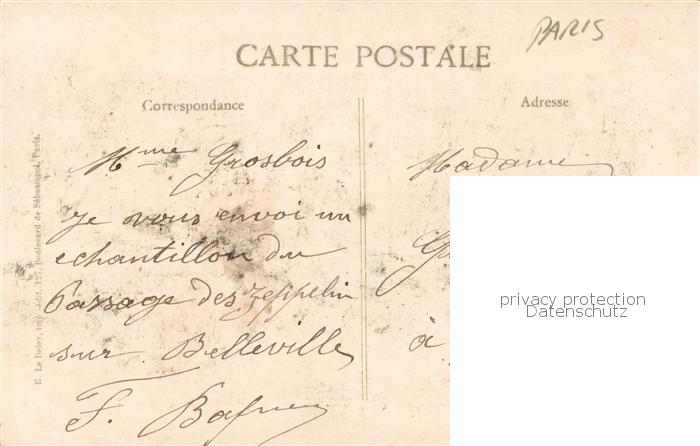 PARIS
CARTE POSTALE
Correspondance
Adresse
Mme Grosbois
je vous envoi un
echantillon du
Passage des zeppelin
sur Belleville
F.
Madame
à
E. Le Deley, imp.-édit., 127, Boulevard de Sébastopol, Paris.
privacy protection
Datenschutz